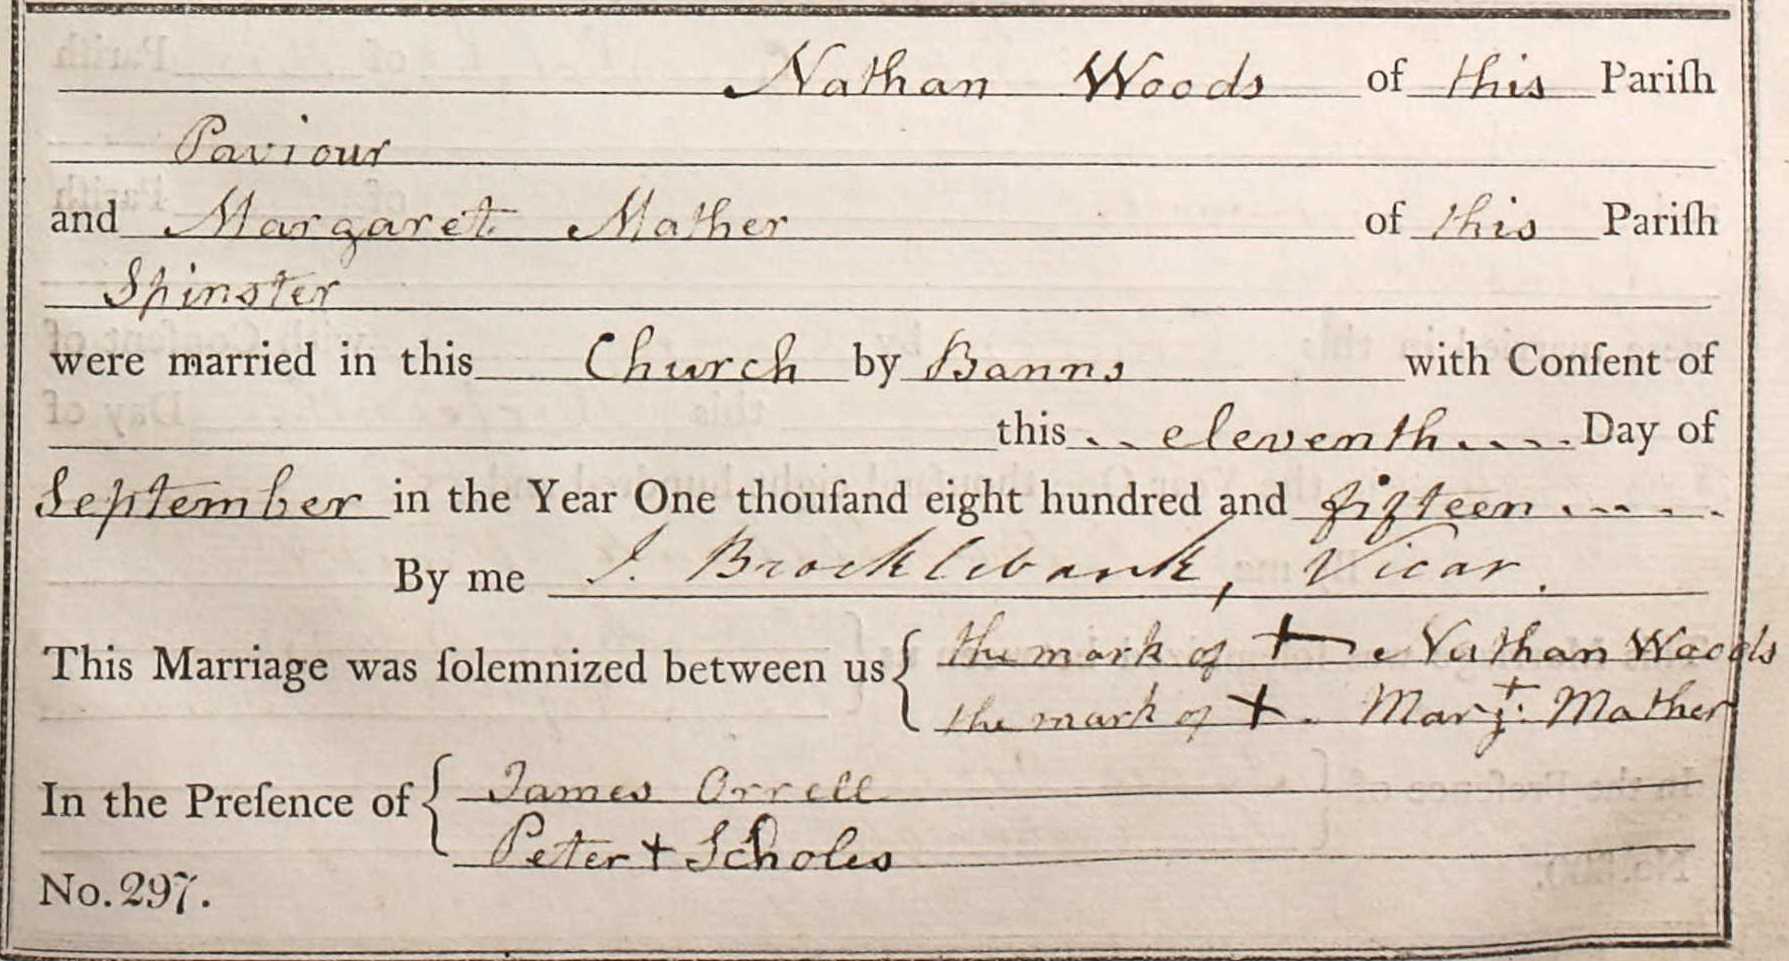 Nathan Woods of this Pariſh
Paviour
and Margaret Mather of this Pariſh
Spinster
were married in this Church by Banns with Conſent of
this eleventh Day of
September in the Year One thouſand eight hundred and fifteen
By me J. Brocklebank, Vicar.
This Marriage was ſolemnized between us { the mark of + Nathan Woods
the mark of + . Margt. Mather
In the Preſence of { James Orrell
Peter + Scholes
No. 297.